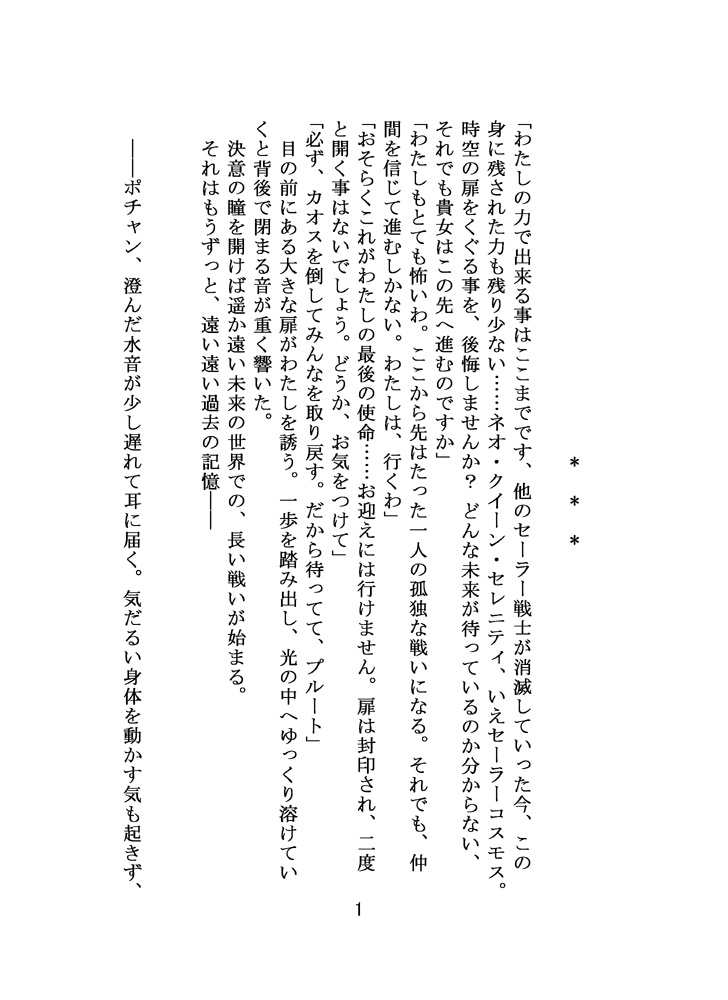 ＊　＊　＊
「わたしの力で出来る事はここまでです、他のセーラー戦士が消滅していった今、この
身に残された力も残り少ない……ネオ・クイーン・セレニティ、いえセーラーコスモス。
時空の扉をくぐる事を、後悔しませんか？　どんな未来が待っているのか分からない、
それでも貴女はこの先へ進むのですか」
「わたしもとても怖いわ。ここから先はたった一人の孤独な戦いになる。それでも、仲
間を信じて進むしかない。わたしは、行くわ」
「おそらくこれがわたしの最後の使命……お迎えには行けません。扉は封印され、二度
と開く事はないでしょう。どうか、お気をつけて」
「必ず、カオスを倒してみんなを取り戻す。だから待ってて、プルート」
　目の前にある大きな扉がわたしを誘う。一歩を踏み出し、光の中へゆっくり溶けてい
くと背後で閉まる音が重く響いた。
　決意の瞳を開けば遥か遠い未来の世界での、長い戦いが始まる。
　それはもうずっと、遠い遠い過去の記憶――
　――ポチャン、澄んだ水音が少し遅れて耳に届く。気だるい身体を動かす気も起きず、
1